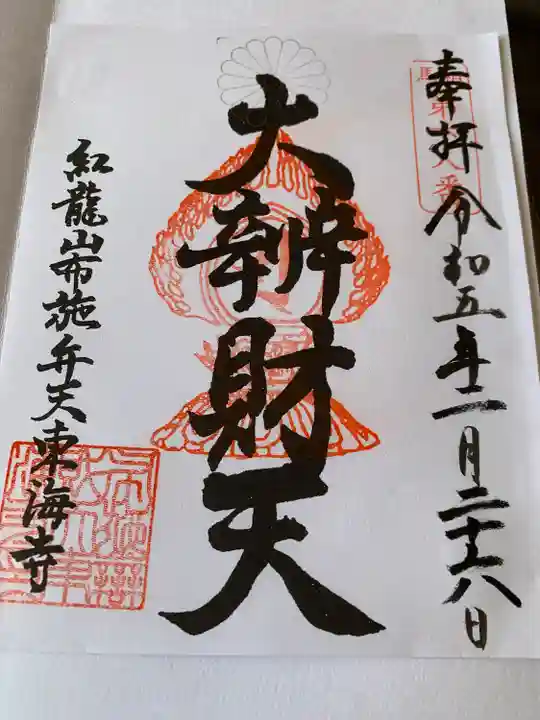 奉拝 令和五年二月二十八日
大辨財天
紅龍山布施弁天東海寺